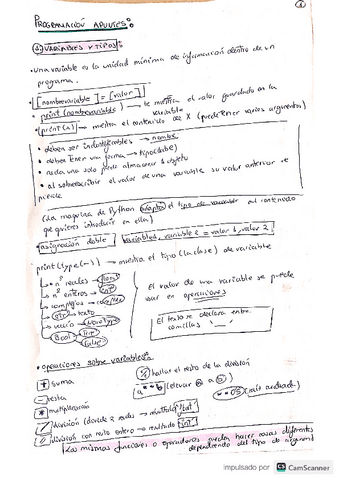 1
PROGRAMACIÓN APUNTES:
1) VARIABLES Y TIPOS:
• una variable es la unidad mínima de información dentro de un
programa.
• [nombrevariable] = [valor]
• print(nombrevariable) → te muestra el valor guardado en la
variable
(print(x) → muestra el contenido de X (puede tener varios argumentos)
• deben ser indentificables → nombre
• deben tener una forma → tipo(dato)
• cada una solo puede almacenar 1 objeto
• al sobreescribir el valor de una variable su valor anterior se
pierde
(La maquina de Python adapta el tipo de variable al contenido
que quieres introducir en ella)
• asignación doble: variable1, variable 2 = valor 1, valor 2
print(type(~)) → muestra el tipo (la clase) de variable
nº reales → float
nº enteros → int
complejos → complex
str → texto
vacío → NoneType
Bool: True
False
el valor de una variable se puede
usar en operaciones
El texto se declara entre
comillas '__'
• operaciones sobre variables:
+ suma
- resta
* multiplicación
/ división (divide 2 reales → resultado float
// división con resto entero → resultado int
% hallar el resto de la división
a**b (elevar a a b)
**0.5 (raíz cuadrada)
Las mismas funciones o operadores pueden hacer cosas diferentes
dependiendo del tipo de argumento
impulsado por CS CamScanner